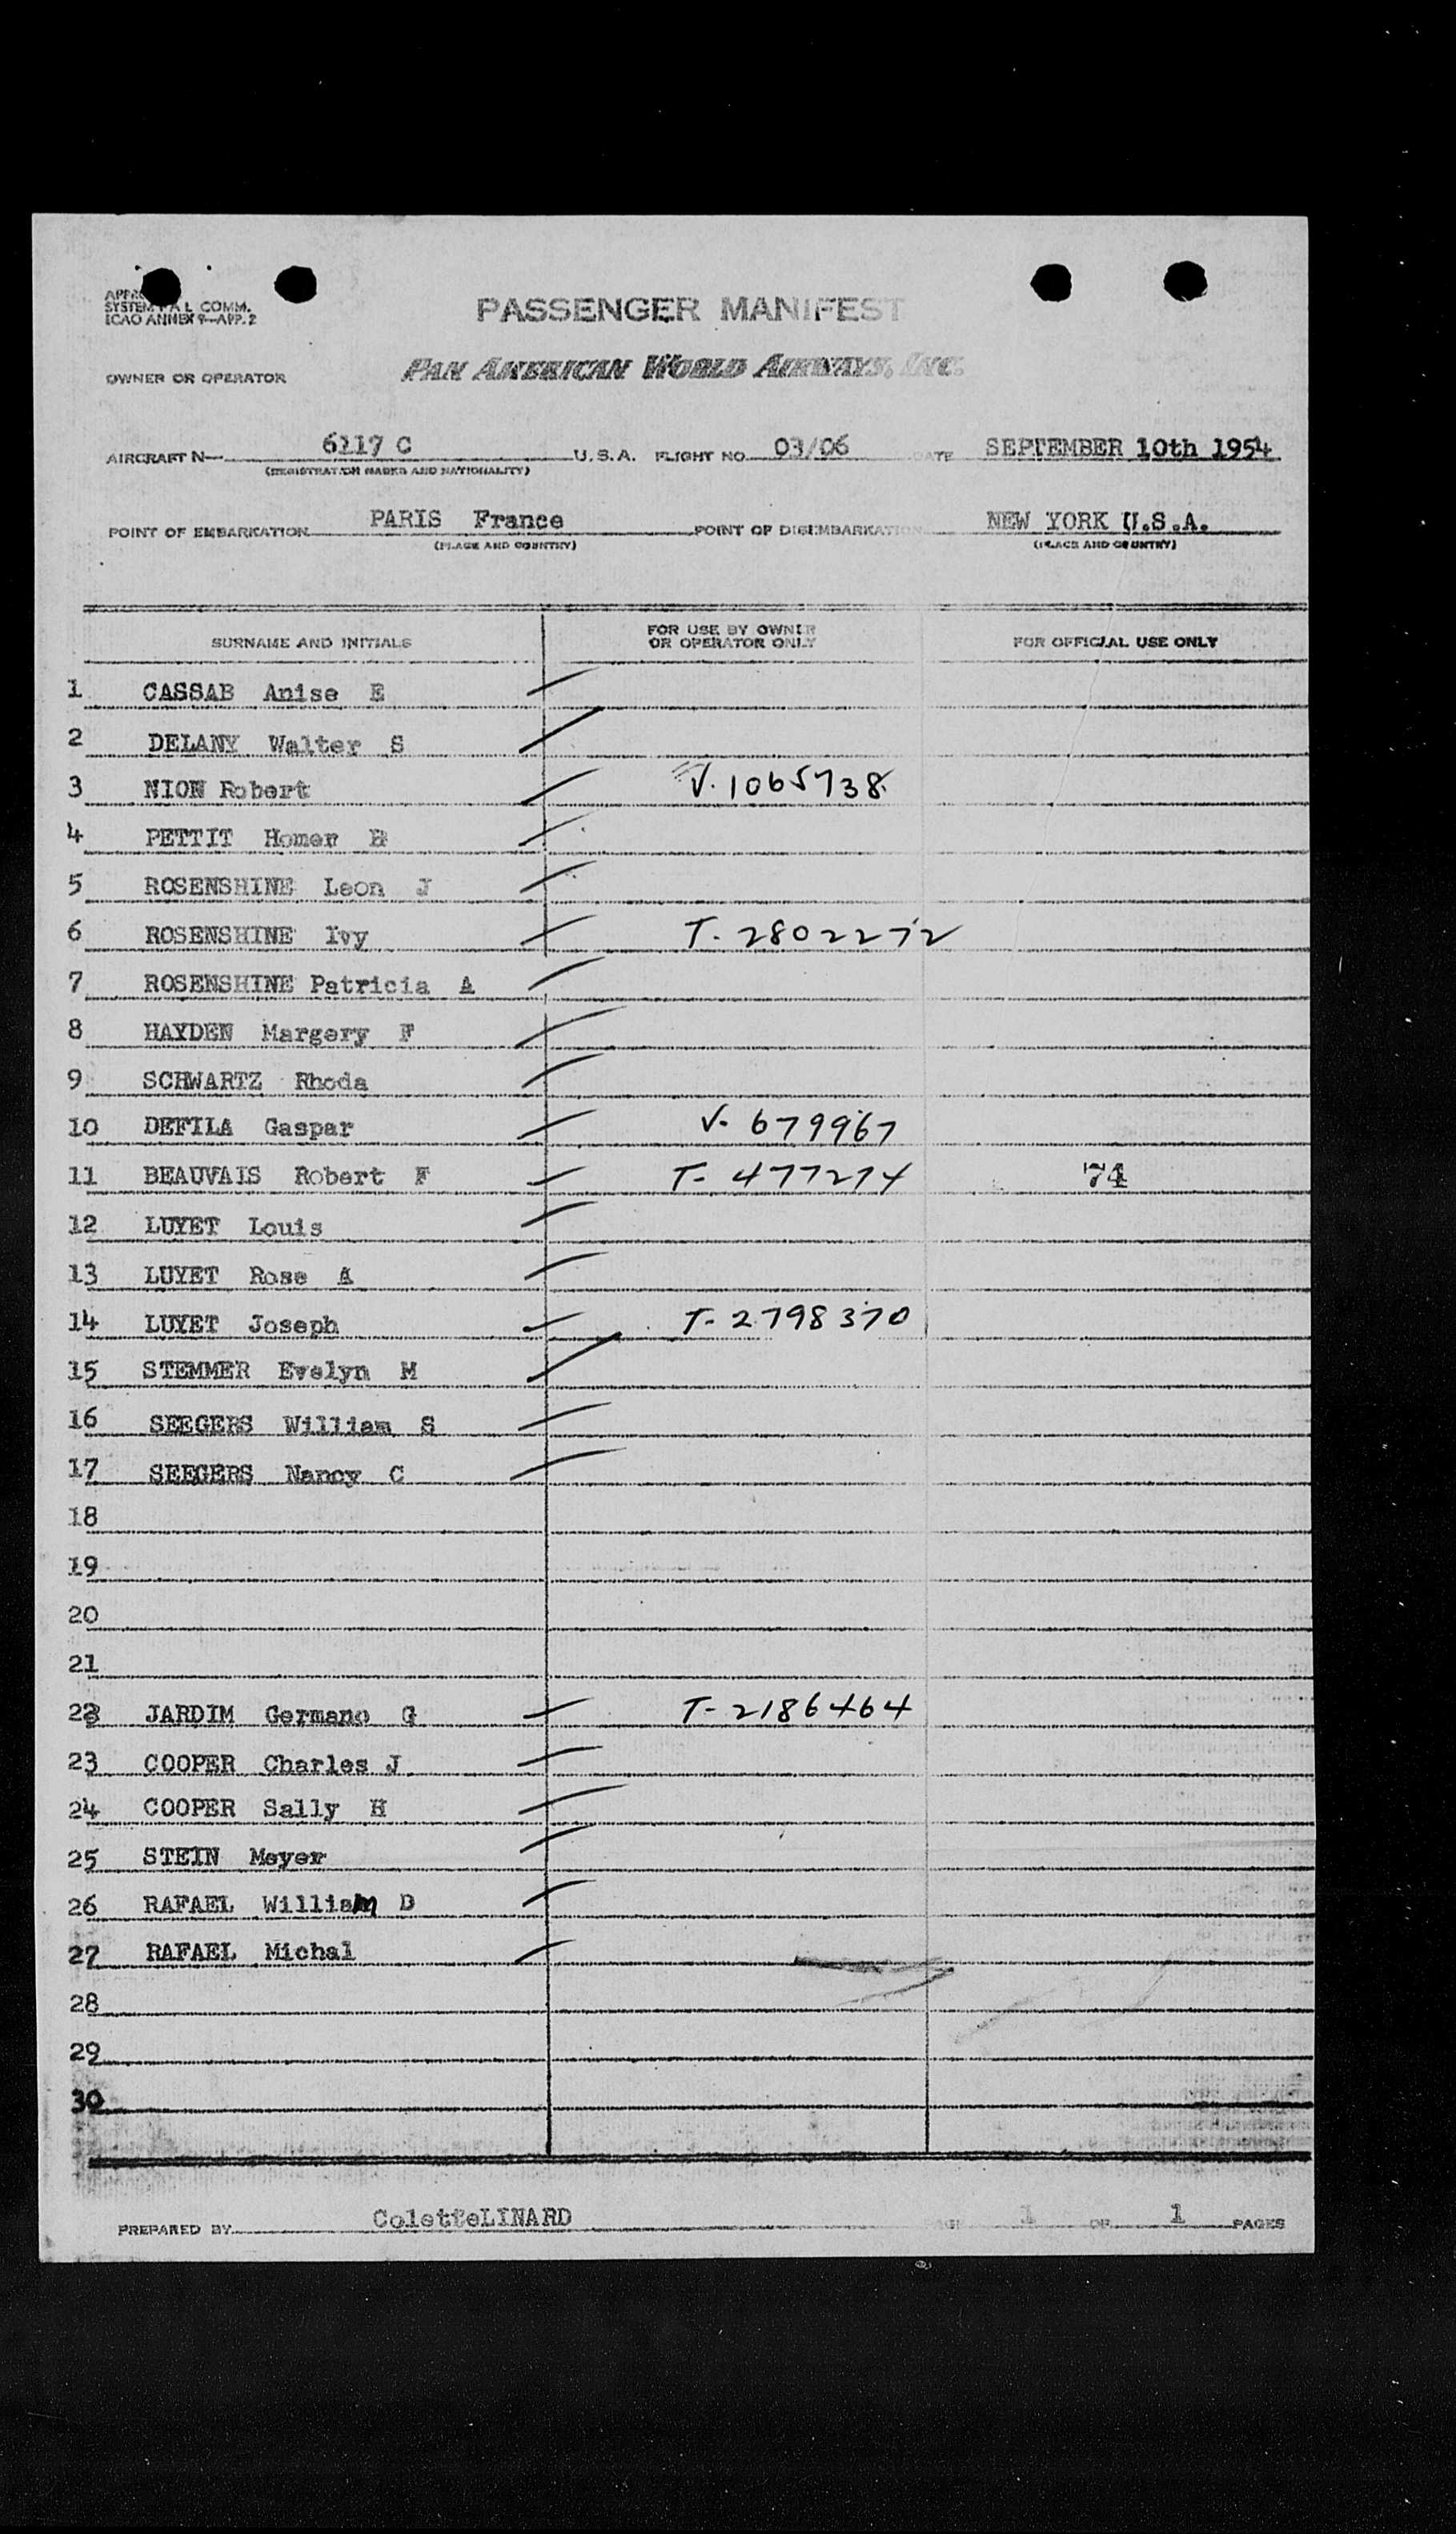 SYSTEM COMM.
ICAO ANNEX 9—APP. 2
PASSENGER MANIFEST
OWNER OR OPERATOR PAN AMERICAN WORLD AIRWAYS, INC.
AIRCRAFT N— 6117 C U.S.A. FLIGHT NO. 03/06 DATE SEPTEMBER 10th 1954
(REGISTRATION MARKS AND NATIONALITY)
POINT OF EMBARKATION PARIS France POINT OF DISEMBARKATION NEW YORK U.S.A.
(PLACE AND COUNTRY) (PLACE AND COUNTRY)
SURNAME AND INITIALS FOR USE BY OWNER OR OPERATOR ONLY FOR OFFICIAL USE ONLY
1 CASSAB Anise E
2 DELANY Walter S
3 NION Robert V. 1065738
4 PETTIT Homer
5 ROSENSHINE Leon J
6 ROSENSHINE Ivy T- 2802272
7 ROSENSHINE Patricia A
8 HAYDEN Margery F
9 SCHWARTZ Rhoda
10 DEFILA Gaspar V- 679967
11 BEAUVAIS Robert F T- 477274 74
12 LUYET Louis
13 LUYET Rose A
14 LUYET Joseph T- 2798370
15 STEMMER Evelyn M
16 SEEGERS William S
17 SEEGERS Nancy C
18
19
20
21
22 JARDIM Germano G T- 2186464
23 COOPER Charles J
24 COOPER Sally H
25 STEIN Meyer
26 RAFAEL William D
27 RAFAEL Michal
28
29
30
PREPARED BY ColetteLINARD PAGE 1 OF 1 PAGES